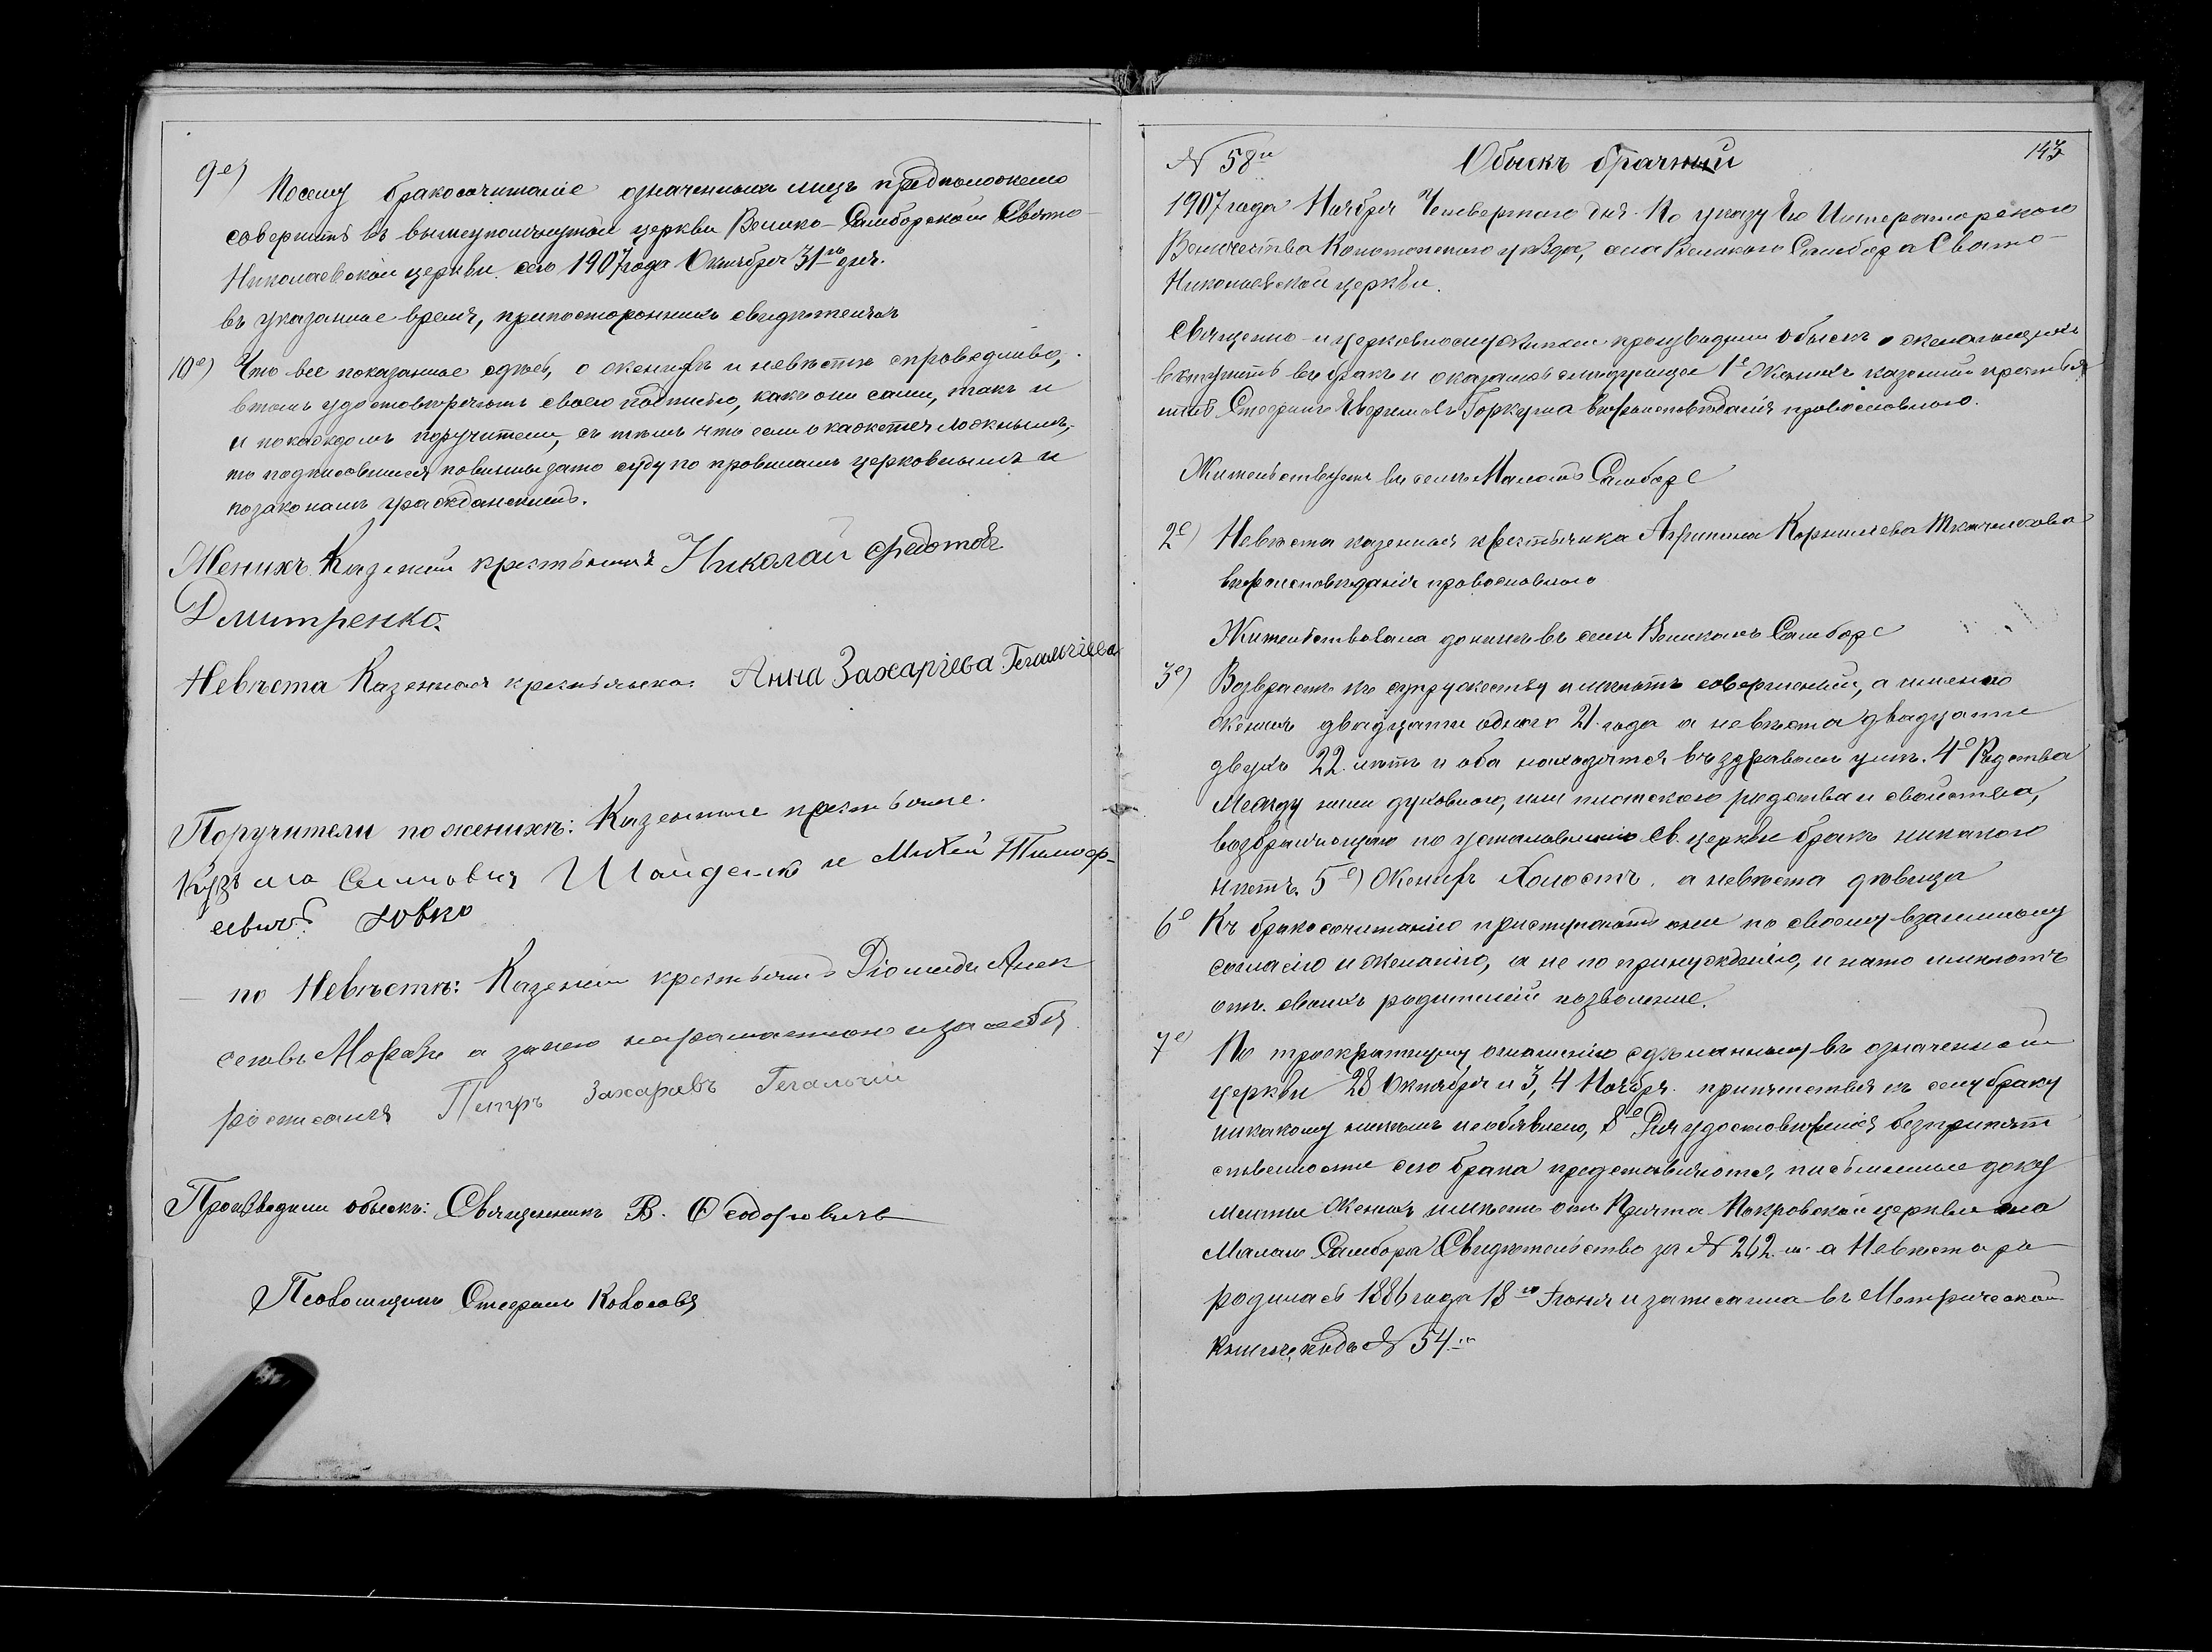 9е) Посему бракосочитаніе означенныхъ лицъ предположено
совершить въ вышеупомянутой церкви Велико-Самборской Свято-
Николаевской церкви сего 1907 года Октября 31го дня.
въ указанное время, припостороннихъ свидѣтеляхъ
10е) Что все показанное здѣсь, о женихѣ и невѣстѣ справедливо,
втомъ удостовѣряютъ своею подписью, какъ они сами, такъ и
и покаждомъ поручители, съ тѣмъ что если окажется ложнымъ,
то подписовшіеся повинны зато суду по правиламъ церковнымъ и
позаконамъ гражданскимъ.
Женихъ Казеный крестьянинъ Николай Федотовъ
Дмитренко.
Невѣста Казенная крестьянка Анна Захаріева Гегальчіева
Поручители по женихѣ: Казенные крестьяне.
Кузьма Шайденко и Михей Тимоф-
еевичъ Ювко
по Невѣстѣ: Казенный крестьянинъ Діомидъ Алек
сеевъ а занего неграматного изасебя
росписался Петръ Захаровъ Гегальчій
Произвадили обыскъ: Священникъ В. Ѳеодоровичъ
Псаломщикъ Стефанъ
№ 58й Обыскъ брачный 143
1907 года Ноября Четвертого дня. По указу Его Императорского
Величества Конотопского уѣзда, села Великого Самбора Свято-
Николаевской церкви.
Священно-и церковнослужители производили обыскъ о желающихъ
вступить въ бракъ и оказалось слѣдующее 1е Женихъ казенный крестья
нинъ Стефанъ Ефремовъ Горкуша вѣроисповѣданія провославного.
Жительствуетъ въ селѣ Маломъ Самборѣ
2е) Невѣста казенная крестьянка Агрипина Корнилiева Ткаченкова
вѣроисповѣданія провославного
Жительствовала донынѣ въ селѣ Великомъ Самборѣ
3е) Возврастъ къ супружеству имѣютъ совершенный, а именно
женихъ двадцати одного 21 года а невѣста двадцати
двухъ 22 лѣтъ и оба находятся въ здравомъ умѣ. 4е Родства
Между ними духовного, или плотского родства и свойства,
возбраняющаго по установленію Св. церкви бракъ никакого
нѣтъ. 5е) Женихъ Холостъ, а невѣста дѣвица
6е Къ бракосочитанію приступаютъ они по своему взаимному
согласію и желанію, а не по принужденію, и нато имѣютъ
отъ своихъ родителей позволеніе.
7е) По троекратному оглашенію сдѣланному въ означенной
церкви 28 Октября и 3, 4 Ноября препятствія къ сему браку
никакому никѣмъ необявлено, 8е Для удостовѣренія безпрепят
ственности сего брака представляются, письменные доку
менты Женихъ имѣетъ отъ Причта Покровской церкви села
Малого Самбора Свидѣтельство за № 262. а Невѣста ро
родилась 1886 года 18го Іюня и записанна въ Метрической
книгѣ подъ № 54.